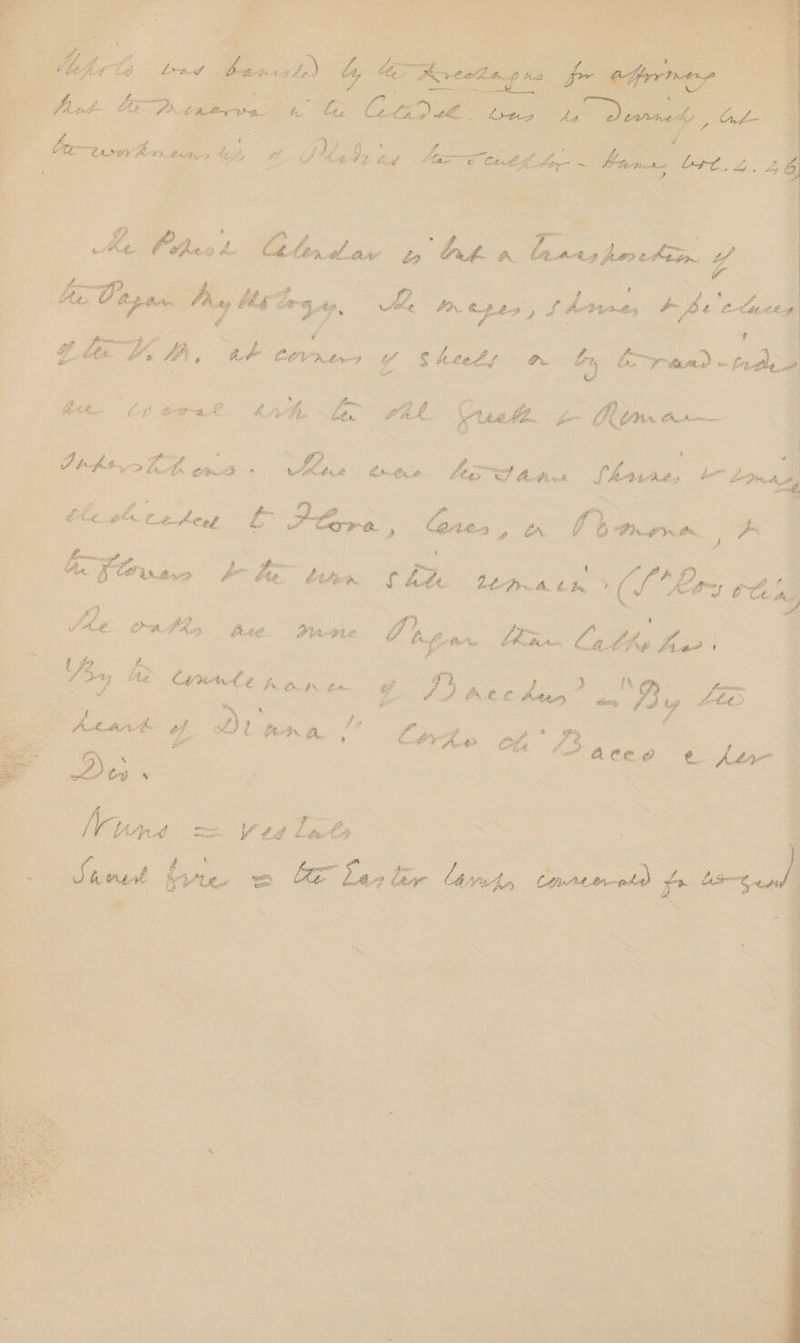 Stilpo was banished by the Areopagus for affirming
that the Minerva in the Citadel was no Divinity, but
the workmanship of Phidias the Sculptor - Hume,
The Popish Calendar is but a transposition of
the Pagan Mythology. The images, shrines, & pictures
of the V. M. at corners of Streets or by the road-side
are coeval with the old Greek & Roman
Superstitions. There were the same Shrines & images
dedicated to Flora, Ceres, or Pomona, &
the flowers & the urn still remain. (St Rosolia)
The oaths are more Pagan than Catholic.
"By the countenance of Bacchus" - "By the
heart of Diana!" Corpo di Bacco e per
Dio.
Nuns = Vestals
Sacred fire = the Easter lamps consecrated